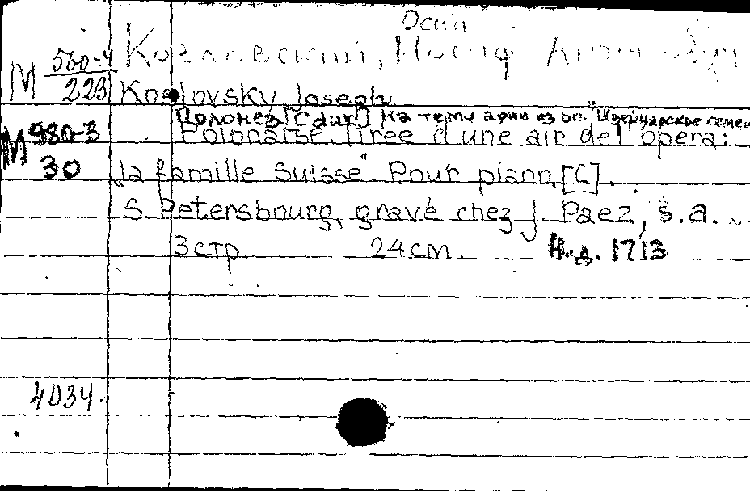 Осип
Козловский, Иосиф Антонович
М 580-4
223 Koslovsky Joseph
Полонез [C-dur] на тему арии из оп. "Швейцарское семей
М 980-3 Polonaise tirée d'une air de l'opera:
30 "la famille Suisse" Pour piano [C].
S. Petersbourg, gravé chez J. Paez, s.a.
3 стр 24 см. Н.д. 1713
4034.